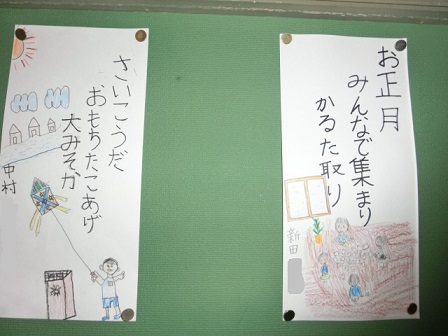 お正月
みんなで集まり
かるた取り
新田
さいこうだ
おもちたこあげ
大みそか
中村